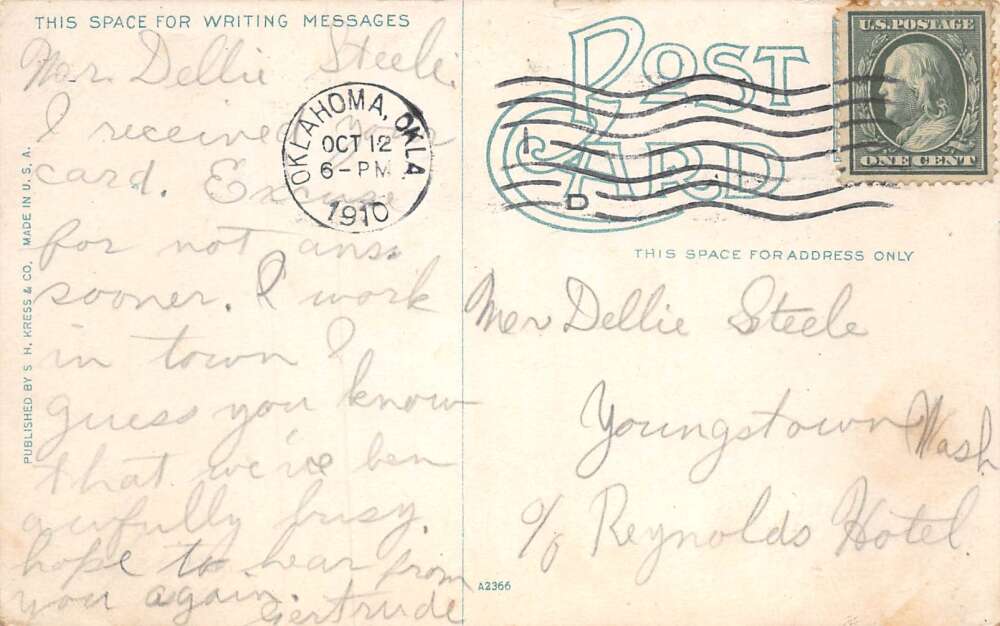 THIS SPACE FOR WRITING MESSAGES
Mr. Dellie Steele.
I received your
card. Excuse
for not ans.
sooner. I work
in town I
guess you know
that we've ben
awfully busy.
hope to hear from
you again.
Gertrude
PUBLISHED BY S. H. KRESS & CO. MADE IN U.S.A.
OKLAHOMA, OKLA
OCT 12
6-PM
1910
POST
CARD
1
D
U.S. POSTAGE
ONE CENT
THIS SPACE FOR ADDRESS ONLY
Mr Dellie Steele
Youngstown Wash
c/o Reynolds Hotel.
A2366